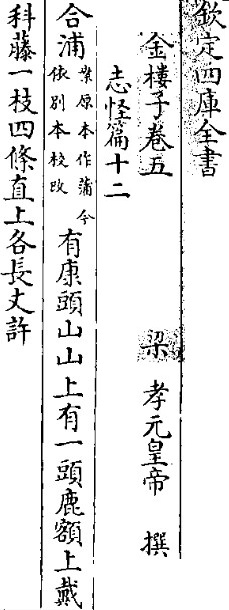 欽定四庫全書
金樓子卷五
梁 孝元皇帝 撰
志怪篇十二
合浦案原本作蒲今依别本校改有康頭山山上有一頭鹿額上戴
科藤一枝四條直上各長丈許